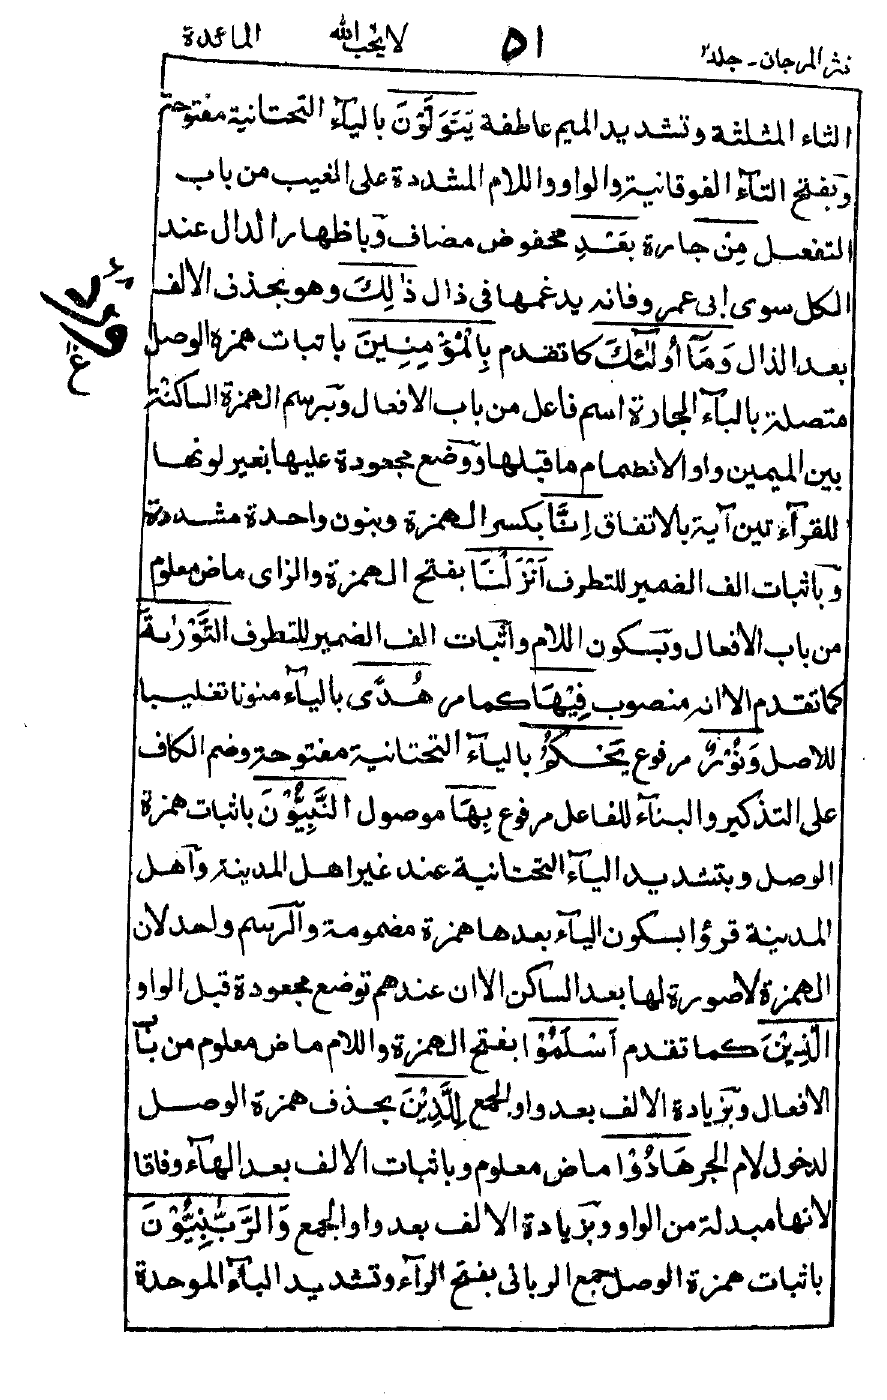 نثر المرجان - جلد ٢ ٥١ لا يحب الله المائدة
الثاء المثلثة وتشديد الميم عاطفة يَتَوَلَّوْنَ بالياء التحتانية مفتوحة
وبفتح التاء الفوقانية والواو واللام المشددة على الغيب من باب
التفعل مِنْ جارة بَعْدِ مخفوض مضاف وباظهار الدال عند
الكل سوى ابى عمرو فانه يدغمها فى ذال ذٰلِكَ وهو بحذف الالف
بعد الذال وَمَآ أُولٰٓئِكَ كما تقدم بِالْمُؤْمِنِينَ باثبات همزة الوصل
متصلة بالباء الجارة اسم فاعل من باب الافعال وبرسم الهمزة الساكنة
بين الميمين واوا لانضمام ما قبلها ووضع مجعودة عليها بغير لونها
للقرآء تين آية بالاتفاق اِنَّا بكسر الهمزة وبنون واحدة مشددة
وباثبات الف الضمير للتطرف اَنْزَلْنَا بفتح الهمزة والزاى ماض معلوم
من باب الافعال وبسكون اللام واثبات الف الضمير للتطرف التَّوْرٰىةَ
كما تقدم الا انه منصوب فِيْهَا كما مر هُدًى بالياء منونا تغليبا
للاصل وَنُوْرٌ مرفوع يَحْكُمُ بالياء التحتانية مفتوحة وضم الكاف
على التذكير والبناء للفاعل مرفوع بِهَا موصول النَّبِيُّوْنَ باثبات همزة
الوصل وبتشديد الياء التحتانية عند غير اهل المدينة واهل
المدينة قرؤا بسكون الياء بعدها همزة مضمومة والرسم واحد لان
الهمزة لا صورة لها بعد الساكن الا ان عندهم توضع مجعودة قبل الواو
الَّذِيْنَ كما تقدم اَسْلَمُوْا بفتح الهمزة واللام ماض معلوم من باب
الافعال وبزيادة الالف بعد واو الجمع لِلَّذِيْنَ بحذف همزة الوصل
لدخول لام الجر هَادُوْا ماض معلوم وباثبات الالف بعد الهاء وفاقا
لانها مبدلة من الواو وبزيادة الالف بعد واو الجمع وَالرَّبّٰنِيُّوْنَ
باثبات همزة الوصل جمع الربانى بفتح الراء وتشديد الباء الموحدة